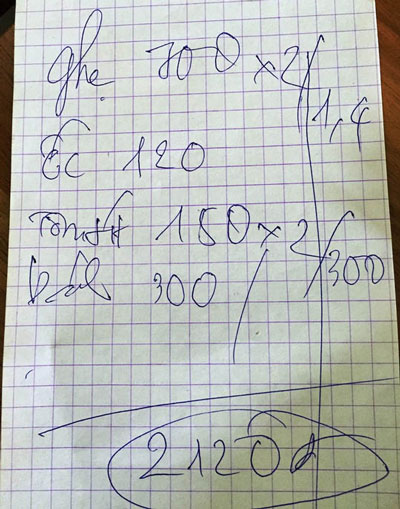 ghẹ 700 x 2/ 1,4
Ốc 120
Tôm tít 150 x 2/ 300
300
2120đ